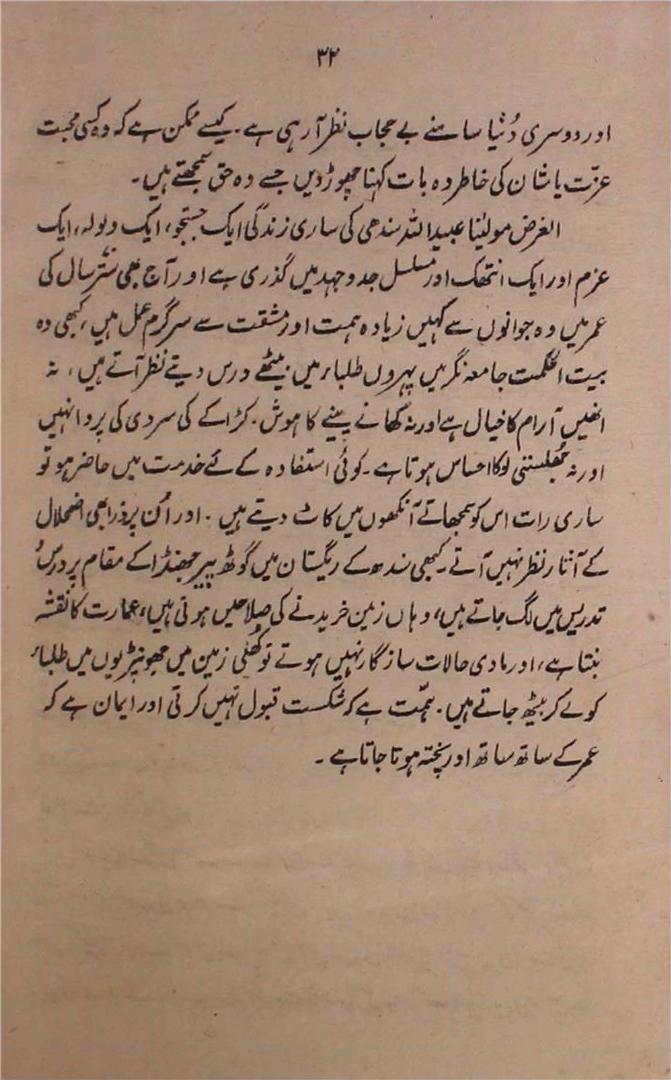 ۳۲
اور دوسری دُنیا سامنے بے حجاب نظر آرہی ہے. کیسے ممکن ہے کہ وہ کسی محبت
عزّت یا شان کی خاطر وہ بات کہنا چھوڑ دیں جسے وہ حق سمجھتے ہیں۔
الغرض مولٰینا عبیداللہ سندھی کی ساری زندگی ایک جستجو، ایک ولولہ، ایک
عزم اور ایک انتھک اور مسلسل جدوجہد میں گذری ہے اور آج بھی ستّر سال کی
عمر میں وہ جوانوں سے کہیں زیادہ ہمت اور مشقت سے سرگرم عمل ہیں، کبھی وہ
بیت الحکمت جامعہ نگر میں پہروں طلباء میں بیٹھے درس دیتے نظر آتے ہیں، نہ
انھیں آرام کا خیال ہے اور نہ کھانے پینے کا ہوش. کڑاکے کی سردی کی پروا نہیں
اور نہ جُھلستی لوکا احساس ہوتا ہے۔ کوئی استفادہ کے لئے خدمت میں حاضر ہو تو
ساری رات اس کو سمجھاتے آنکھوں میں کاٹ دیتے ہیں. اور اُن پر ذرا بھی اضمحلال
کے آثار نظر نہیں آتے۔ کبھی سندھ کے ریگستان میں گوٹھ پیر جھنڈا کے مقام پر درس و
تدریس میں لگ جاتے ہیں، وہاں زمین خریدنے کی صلاحیں ہوتی ہیں، عمارت کا نقشہ
بنتا ہے، اور مادی حالات سازگار نہیں ہوتے تو کُھلی زمین میں جھونپڑیوں میں طلباء
کو لے کر بیٹھ جاتے ہیں. ہمّت ہے کہ شکست قبول نہیں کرتی اور ایمان ہے کہ
عمر کے ساتھ ساتھ اور پختہ ہوتا جاتا ہے۔